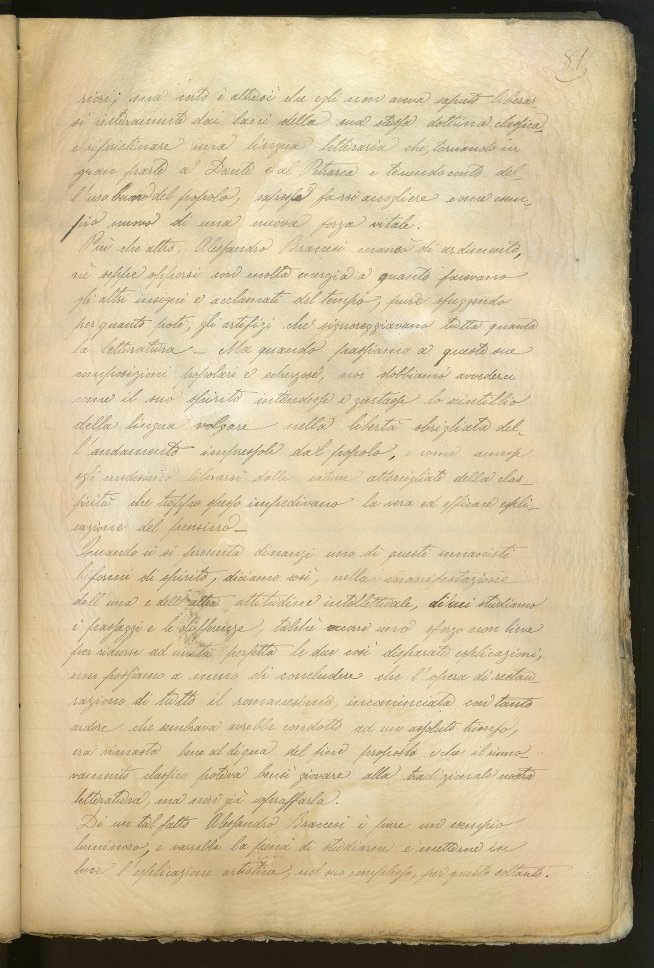 81
riori; ma certo è altresì che egli non aveva saputo liberar-
si interamente dai lacci della sua stessa dottrina classica,
e ripristinare una lingua letteraria che, tornando in
gran parte a Dante e al Petrarca e tenendo conto del-
l'uso buono del popolo, sapesse farsi accogliere come esem-
pio nuovo di una nuova forza vitale.
Più che altro, Alessandro Braccesi mancò di ardimento,
nè seppe opporsi con molta energia a quanto facevano
gli altri insigni e acclamati del tempo, pure sfuggendo
per quanto potè, gli artefizi che signoreggiavano tutta quanta
la letteratura – Ma quando passiamo a queste sue
composizioni popolari e scherzose, noi dobbiamo avvederci
come il suo spirito intendesse e gustasse lo scintillio
della lingua volgare nella libertà sbrigliata del-
l'andamento impressole dal popolo, e come
egli medesimo liberarsi dalle catene attorcigliate della clas-
sicità che troppo spesso impedivano la vera ed efficace espli-
cazione del pensiero –
Quando ci si presenta dinanzi uno di questi umanisti
biformi di spirito, diciamo così, nella manifestazione
dell'una e dell'altra attitudine intellettuale, di cui studiamo
i passaggi e le differenze, talchè occorre uno sforzo non lieve
per ridurre ad unità perfetta le due così disparate esplicazioni,
non possiamo a meno di concludere che l'opera di restau-
razione di tutto il romanesimo, incominciata con tanto
ardore che sembrava avrebbe condotto ad un assoluto trionfo,
era rimasta bene al di qua del fine proposto e che il rinno-
vamento classico poteva bensì giovare alla tradizionale nostra
letteratura, ma non già sopraffarla.
Di un tal fatto Alessandro Braccesi è pure un esempio
luminoso, e varrebbe la pena di studiarne e metterne in
luce l'esplicazione artistica, nel suo complesso, per questo soltanto.